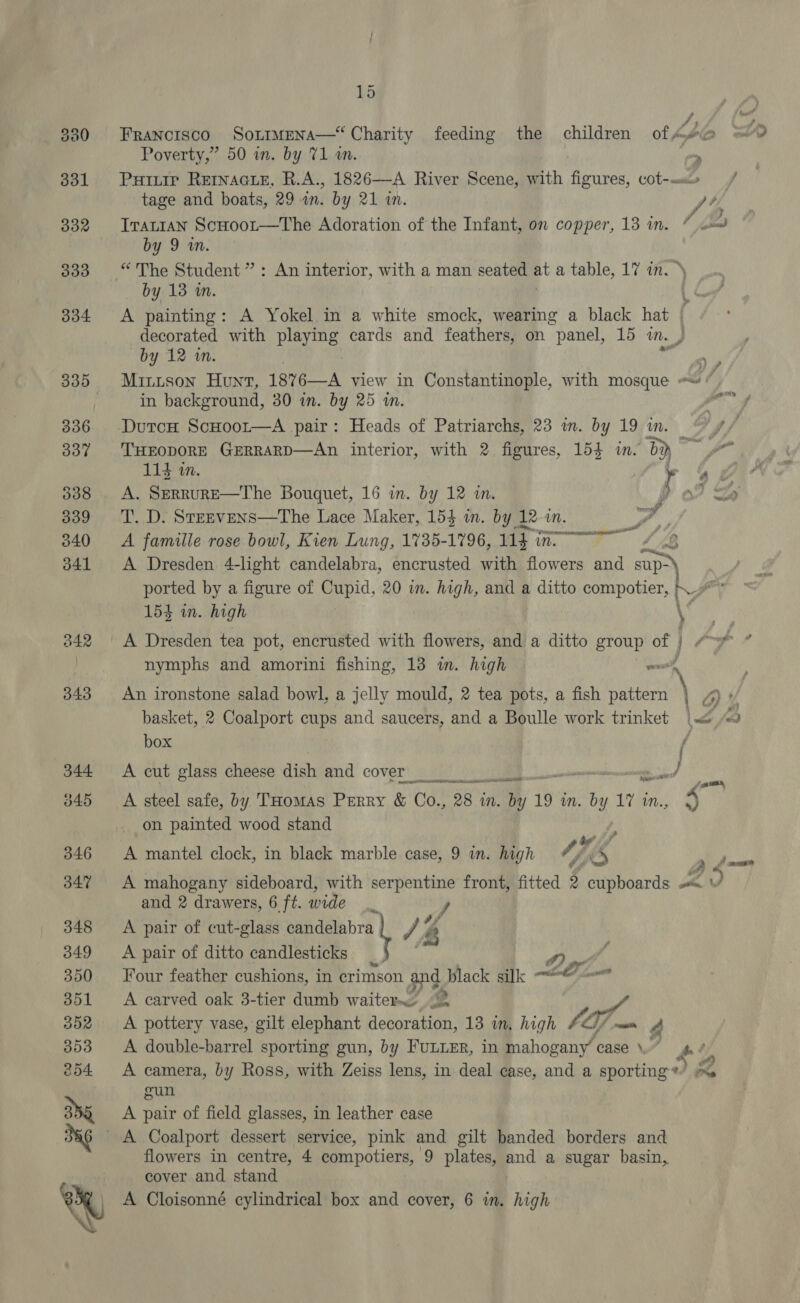 15
330 FRANCISCO SOLIMENA—“ Charity feeding the children of
Poverty,” 50 in. by 71 in.
331 PHILIP REINAGLE, R.A., 1826—A River Scene, with figures, cot-
tage and boats, 29 in. by 21 in.
332 ITALIAN SCHOOL—The Adoration of the Infant, on copper, 13 in.
by 9 in.
333 “ The Student ” : An interior, with a man seated at a table, 17 in.
by 13 in.
334 A painting: A Yokel in a white smock, wearing a black hat
decorated with playing cards and feathers, on panel, 15 in.
by 12 in.
335 MILLSON HUNT, 1876—A view in Constantinople, with mosque
in background, 30 in. by 25 in.
336 DUTCH SCHOOL—A pair: Heads of Patriarchs, 23 in. by 19 in.
337 THEODORE GERRARD—An interior, with 2 figures, 15½ in. by
11½ in.
338 A. SERRURE—The Bouquet, 16 in. by 12 in.
339 T. D. STEEVENS—The Lace Maker, 15½ in. by 12 in.
340 A famille rose bowl, Kien Lung, 1735-1796, 11½ in.
341 A Dresden 4-light candelabra, encrusted with flowers and sup-
ported by a figure of Cupid, 20 in. high, and a ditto compotier,
15½ in. high
342 A Dresden tea pot, encrusted with flowers, and a ditto group of
nymphs and amorini fishing, 13 in. high
343 An ironstone salad bowl, a jelly mould, 2 tea pots, a fish pattern
basket, 2 Coalport cups and saucers, and a Boulle work trinket
box
344 A cut glass cheese dish and cover
345 A steel safe, by THOMAS PERRY & Co., 28 in. by 19 in. by 17 in.,
on painted wood stand
346 A mantel clock, in black marble case, 9 in. high
347 A mahogany sideboard, with serpentine front, fitted 2 cupboards
and 2 drawers, 6 ft. wide
348 A pair of cut-glass candelabra
349 A pair of ditto candlesticks
350 Four feather cushions, in crimson and black silk
351 A carved oak 3-tier dumb waiter
352 A pottery vase, gilt elephant decoration, 13 in. high
353 A double-barrel sporting gun, by FULLER, in mahogany case
354 A camera, by Ross, with Zeiss lens, in deal case, and a sporting
gun
355 A pair of field glasses, in leather case
356 A Coalport dessert service, pink and gilt banded borders and
flowers in centre, 4 compotiers, 9 plates, and a sugar basin,
cover and stand
357 A Cloisonné cylindrical box and cover, 6 in. high